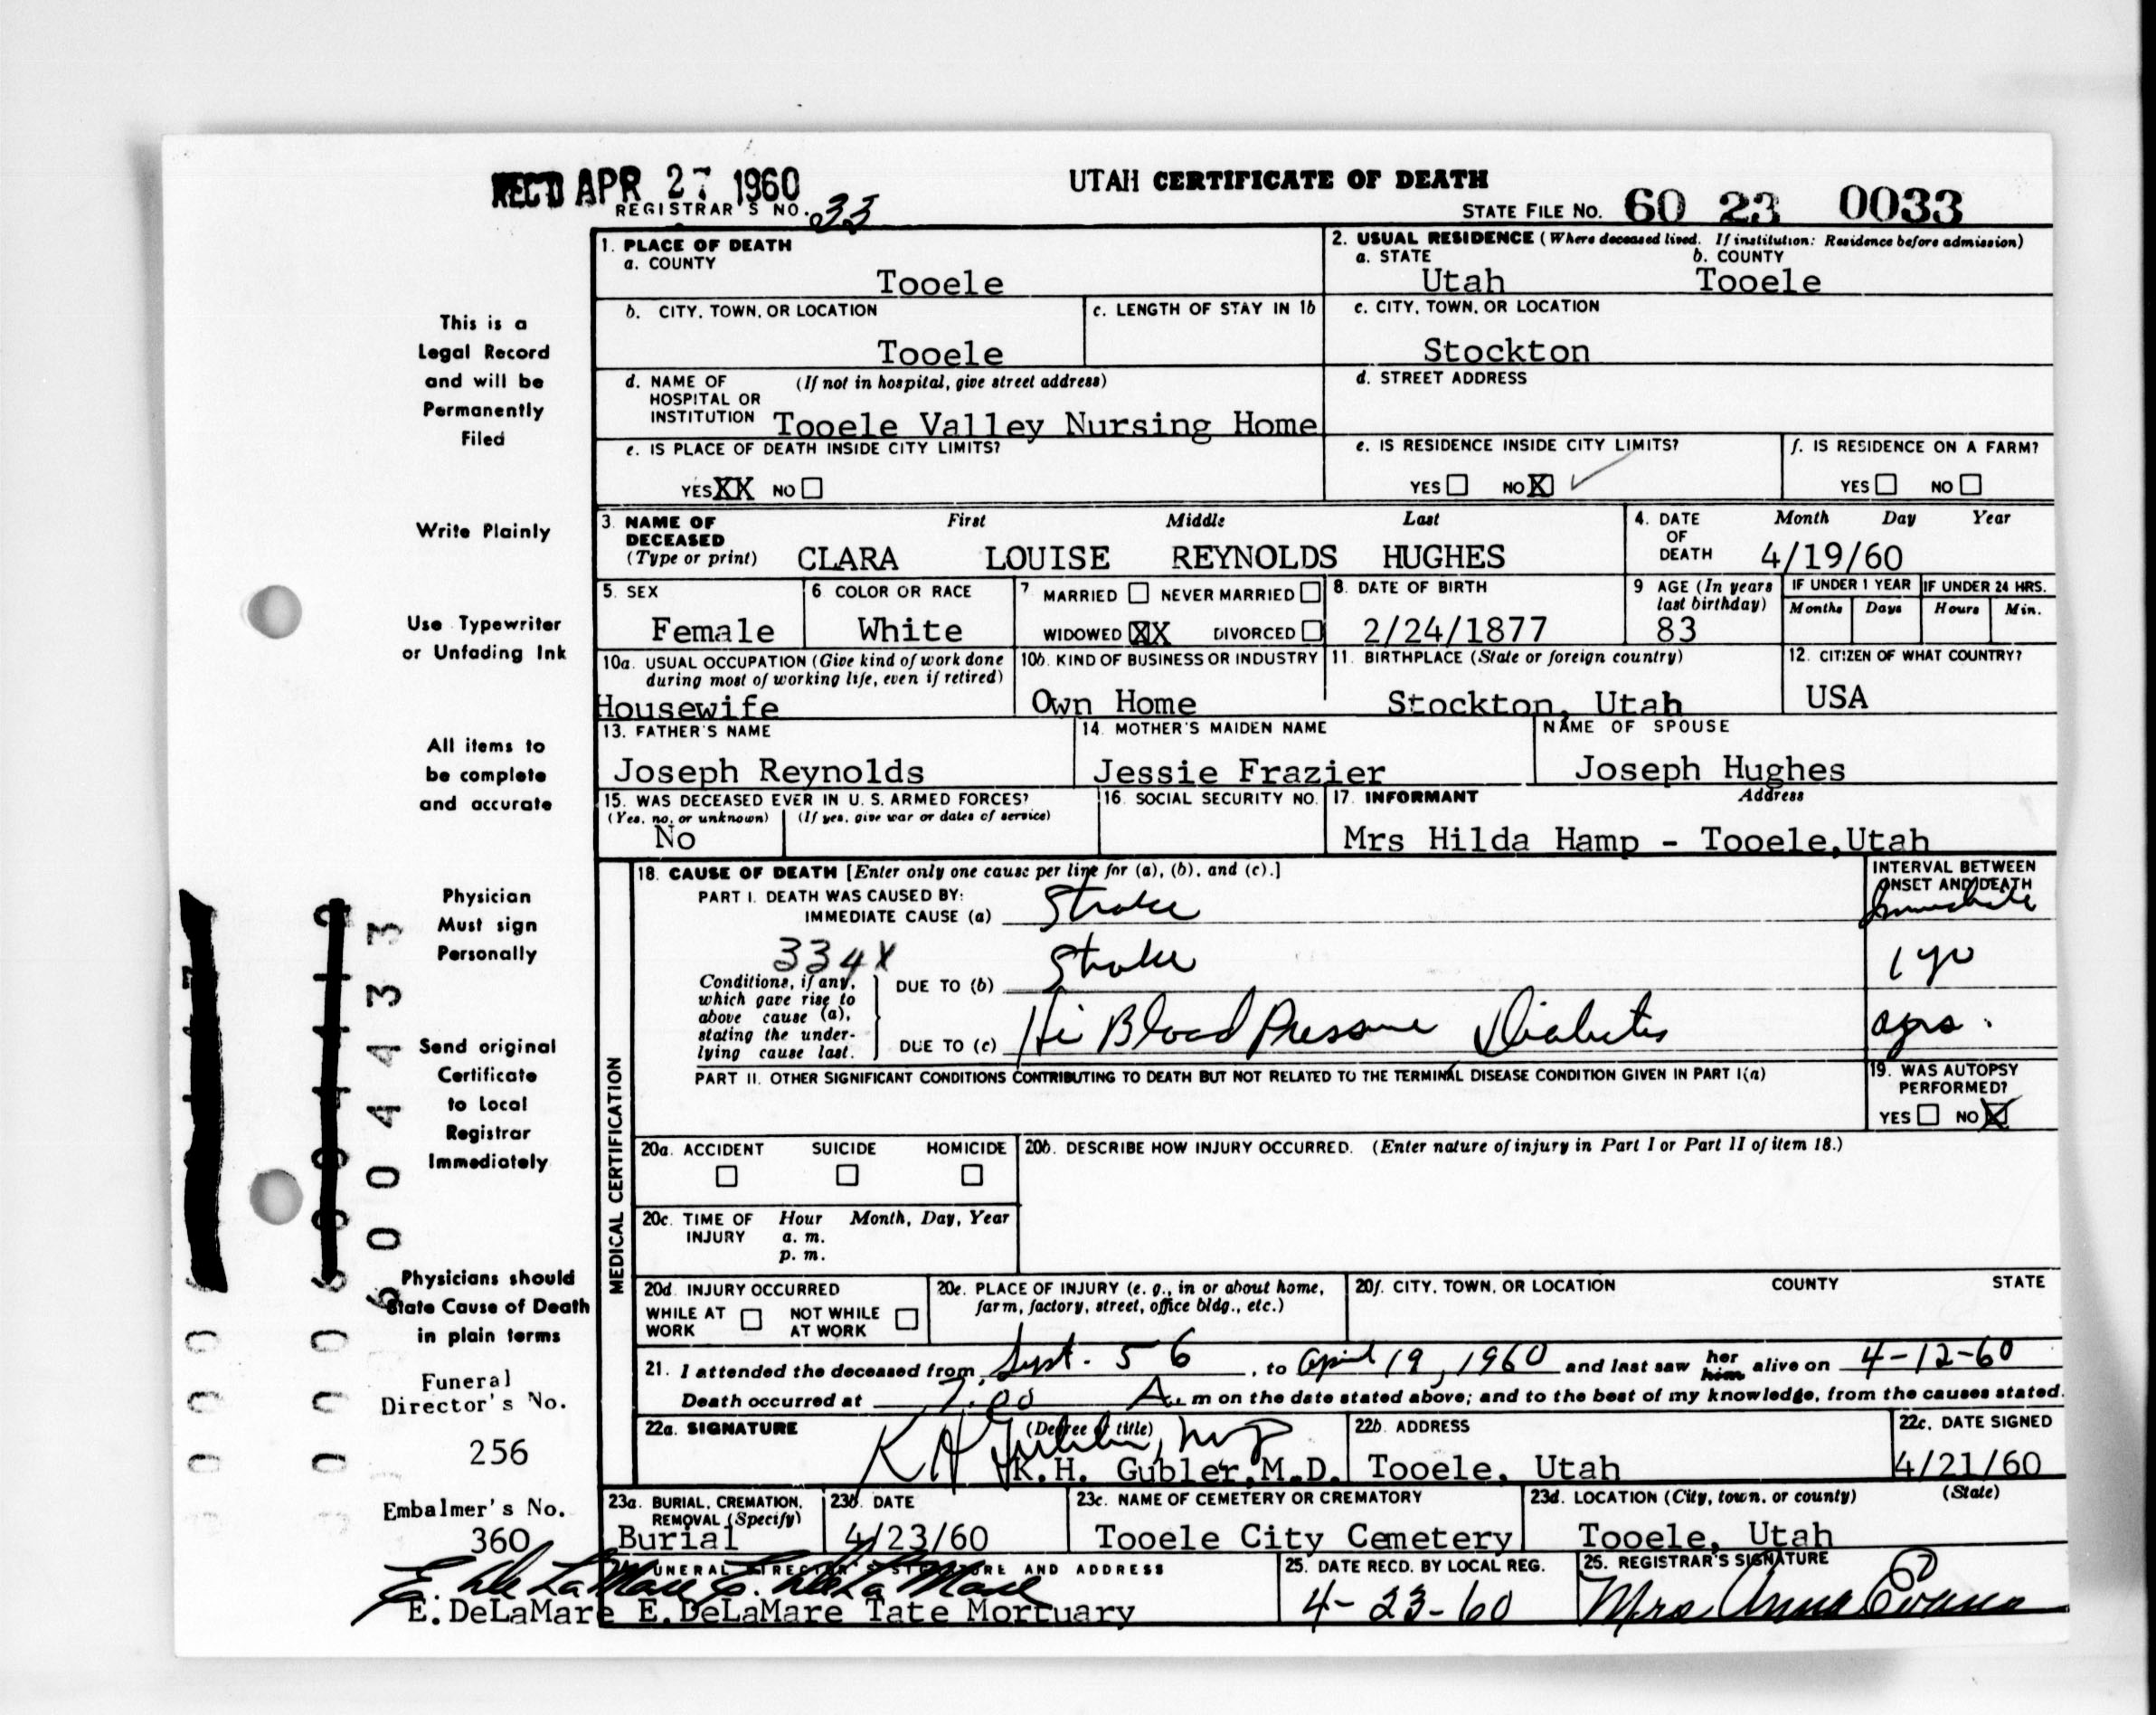 REC'D APR 27 1960
UTAH CERTIFICATE OF DEATH
REGISTRAR'S NO. 33
STATE FILE No. 60 23 0033
1. PLACE OF DEATH
a. COUNTY
Tooele
2. USUAL RESIDENCE (Where deceased lived. If institution: Residence before admission)
a. STATE b. COUNTY
Utah Tooele
b. CITY, TOWN, OR LOCATION
Tooele
c. LENGTH OF STAY IN 1b
c. CITY, TOWN, OR LOCATION
Stockton
d. NAME OF (If not in hospital, give street address)
HOSPITAL OR
INSTITUTION Tooele Valley Nursing Home
d. STREET ADDRESS
e. IS PLACE OF DEATH INSIDE CITY LIMITS?
YES XX NO
e. IS RESIDENCE INSIDE CITY LIMITS?
YES NO X
f. IS RESIDENCE ON A FARM?
YES NO
3. NAME OF First Middle Last
DECEASED
(Type or print) CLARA LOUISE REYNOLDS HUGHES
4. DATE Month Day Year
OF
DEATH 4/19/60
5. SEX
Female
6 COLOR OR RACE
White
7 MARRIED NEVER MARRIED
WIDOWED XX DIVORCED
8. DATE OF BIRTH
2/24/1877
9 AGE (In years
last birthday)
83
IF UNDER 1 YEAR IF UNDER 24 HRS.
Months Days Hours Min.
10a. USUAL OCCUPATION (Give kind of work done
during most of working life, even if retired)
Housewife
10b. KIND OF BUSINESS OR INDUSTRY
Own Home
11. BIRTHPLACE (State or foreign country)
Stockton, Utah
12. CITIZEN OF WHAT COUNTRY?
USA
13. FATHER'S NAME
Joseph Reynolds
14. MOTHER'S MAIDEN NAME
Jessie Frazier
NAME OF SPOUSE
Joseph Hughes
15. WAS DECEASED EVER IN U. S. ARMED FORCES?
(Yes, no, or unknown) (If yes, give war or dates of service)
No
16. SOCIAL SECURITY NO.
17. INFORMANT Address
Mrs Hilda Hamp - Tooele, Utah
MEDICAL CERTIFICATION
18. CAUSE OF DEATH [Enter only one cause per line for (a), (b), and (c).]
PART I. DEATH WAS CAUSED BY:
IMMEDIATE CAUSE (a) Stroke
INTERVAL BETWEEN
ONSET AND DEATH
Immediate
334X
Conditions, if any,
which gave rise to
above cause (a),
stating the under-
lying cause last.
DUE TO (b) Stroke
1 yr
DUE TO (c) Hi Blood Pressure Diabetes
PART II. OTHER SIGNIFICANT CONDITIONS CONTRIBUTING TO DEATH BUT NOT RELATED TO THE TERMINAL DISEASE CONDITION GIVEN IN PART I(a)
19. WAS AUTOPSY
PERFORMED?
YES NO X
20a. ACCIDENT SUICIDE HOMICIDE
20b. DESCRIBE HOW INJURY OCCURRED. (Enter nature of injury in Part I or Part II of item 18.)
20c. TIME OF Hour Month, Day, Year
INJURY a. m.
p. m.
20d. INJURY OCCURRED
WHILE AT NOT WHILE
WORK AT WORK
20e. PLACE OF INJURY (e. g., in or about home,
farm, factory, street, office bldg., etc.)
20f. CITY, TOWN, OR LOCATION COUNTY STATE
21. I attended the deceased from Sept. 56, to April 19, 1960 and last saw her him alive on 4-12-60
Death occurred at 7:00 A. m on the date stated above; and to the best of my knowledge, from the causes stated.
22a. SIGNATURE (Degree or title)
K H Gubler, MD
K.H. Gubler, M.D.
22b. ADDRESS
Tooele, Utah
22c. DATE SIGNED
4/21/60
23a. BURIAL, CREMATION,
REMOVAL (Specify)
Burial
23b. DATE
4/23/60
23c. NAME OF CEMETERY OR CREMATORY
Tooele City Cemetery
23d. LOCATION (City, town, or county) (State)
Tooele, Utah
FUNERAL DIRECTOR'S SIGNATURE AND ADDRESS
E. DeLaMare E. DeLaMare
E. DeLaMare E. DeLaMare Tate Mortuary
25. DATE RECD. BY LOCAL REG.
4-23-60
26. REGISTRAR'S SIGNATURE
Mrs Anna Evans
This is a
Legal Record
and will be
Permanently
Filed
Write Plainly
Use Typewriter
or Unfading Ink
All items to
be complete
and accurate
Physician
Must sign
Personally
Send original
Certificate
to Local
Registrar
Immediately
Physicians should
State Cause of Death
in plain terms
Funeral
Director's No.
256
Embalmer's No.
360
6004433